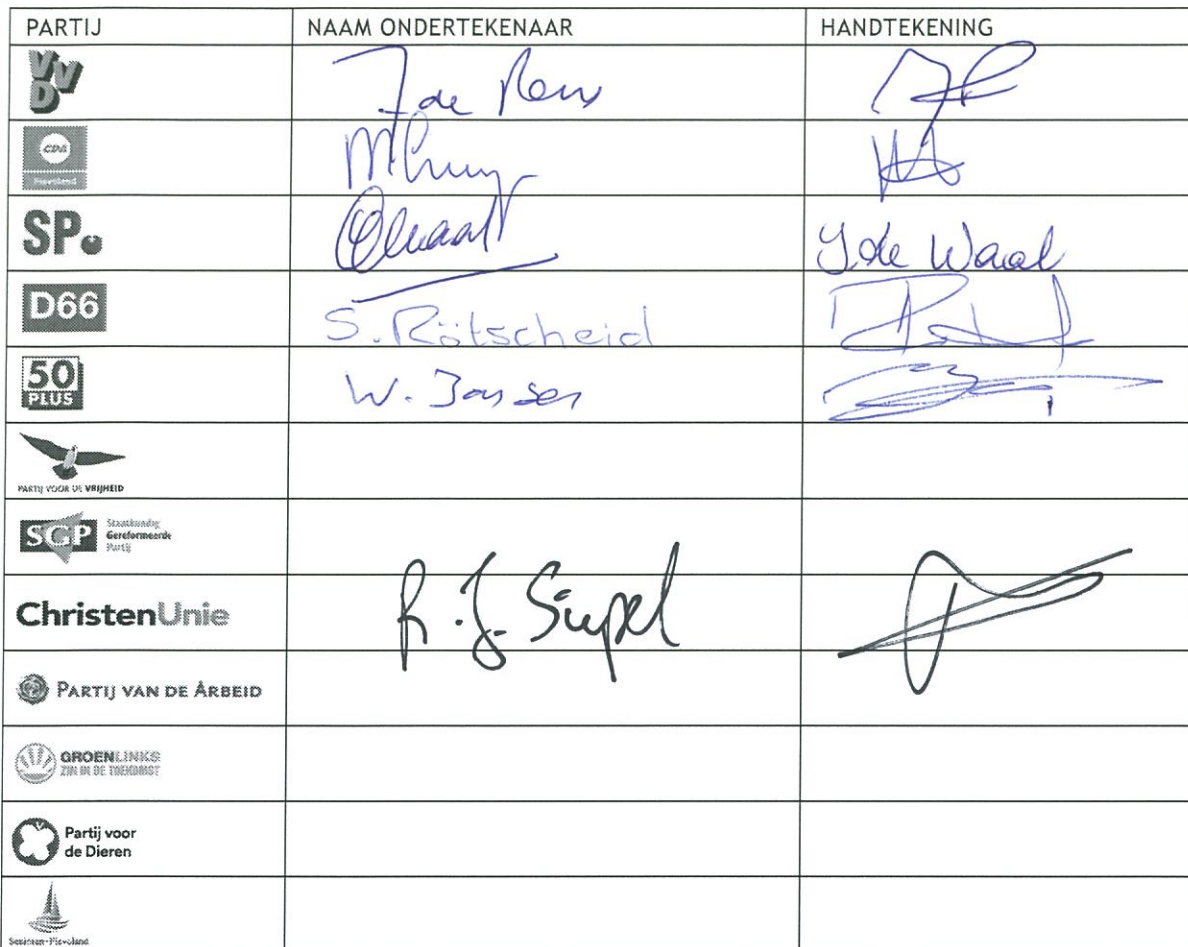 PARTIJ NAAM ONDERTEKENAAR HANDTEKENING
VVD J de Reus
CDA
SP. J. de Waal
D66 S. Rötscheid
50 PLUS W. Jansen
PARTIJ VOOR DE VRIJHEID
SGP Staatkundig Gereformeerde Partij
ChristenUnie R.J. Siepel
PARTIJ VAN DE ARBEID
GROENLINKS
ZIN IN DE TOEKOMST
Partij voor
de Dieren
Senioren-Flevoland